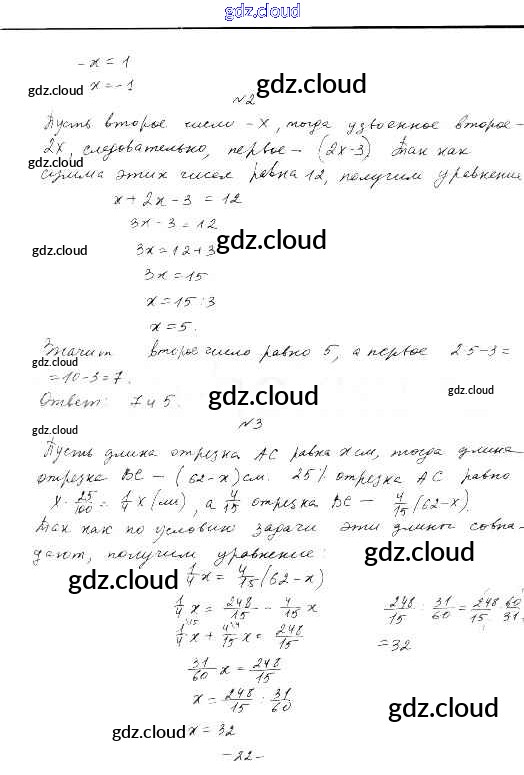 gdz.cloud
-x = 1
gdz.cloud x = -1 gdz.cloud
№2
Пусть второе число - x, тогда удвоенное второе -
2x, следовательно, первое - (2x-3) Так как
gdz.cloud
сумма этих чисел равна 12, получим уравнение
x + 2x - 3 = 12
3x - 3 = 12
gdz.cloud 3x = 12 + 3 gdz.cloud
3x = 15
x = 15 : 3
x = 5.
Значит второе число равно 5, а первое 2 5 - 3 =
gdz.cloud
= 10 - 3 = 7. gdz.cloud
Ответ: 7 и 5. gdz.cloud
gdz.cloud №3
Пусть длина отрезка AC равна x см, тогда длина
отрезка BC - (62-x) см. 25% отрезка AC равно
x · 25/100 = 1/4 x (см), а 4/15 отрезка BC - 4/15 (62-x).
Так как по условию задачи эти длины совпа-
дают, получим уравнение: gdz.cloud
gdz.cloud 1/4 x = 4/15 (62-x)
1/4 x = 248/15 - 4/15 x 248/15 : 31/60 = 248/15 · 60/31
1/4 x + 4/15 x = 248/15 = 32
31/60 x = 248/15
x = 248/15 : 31/60 gdz.cloud
gdz.cloud x = 32
- 22 -